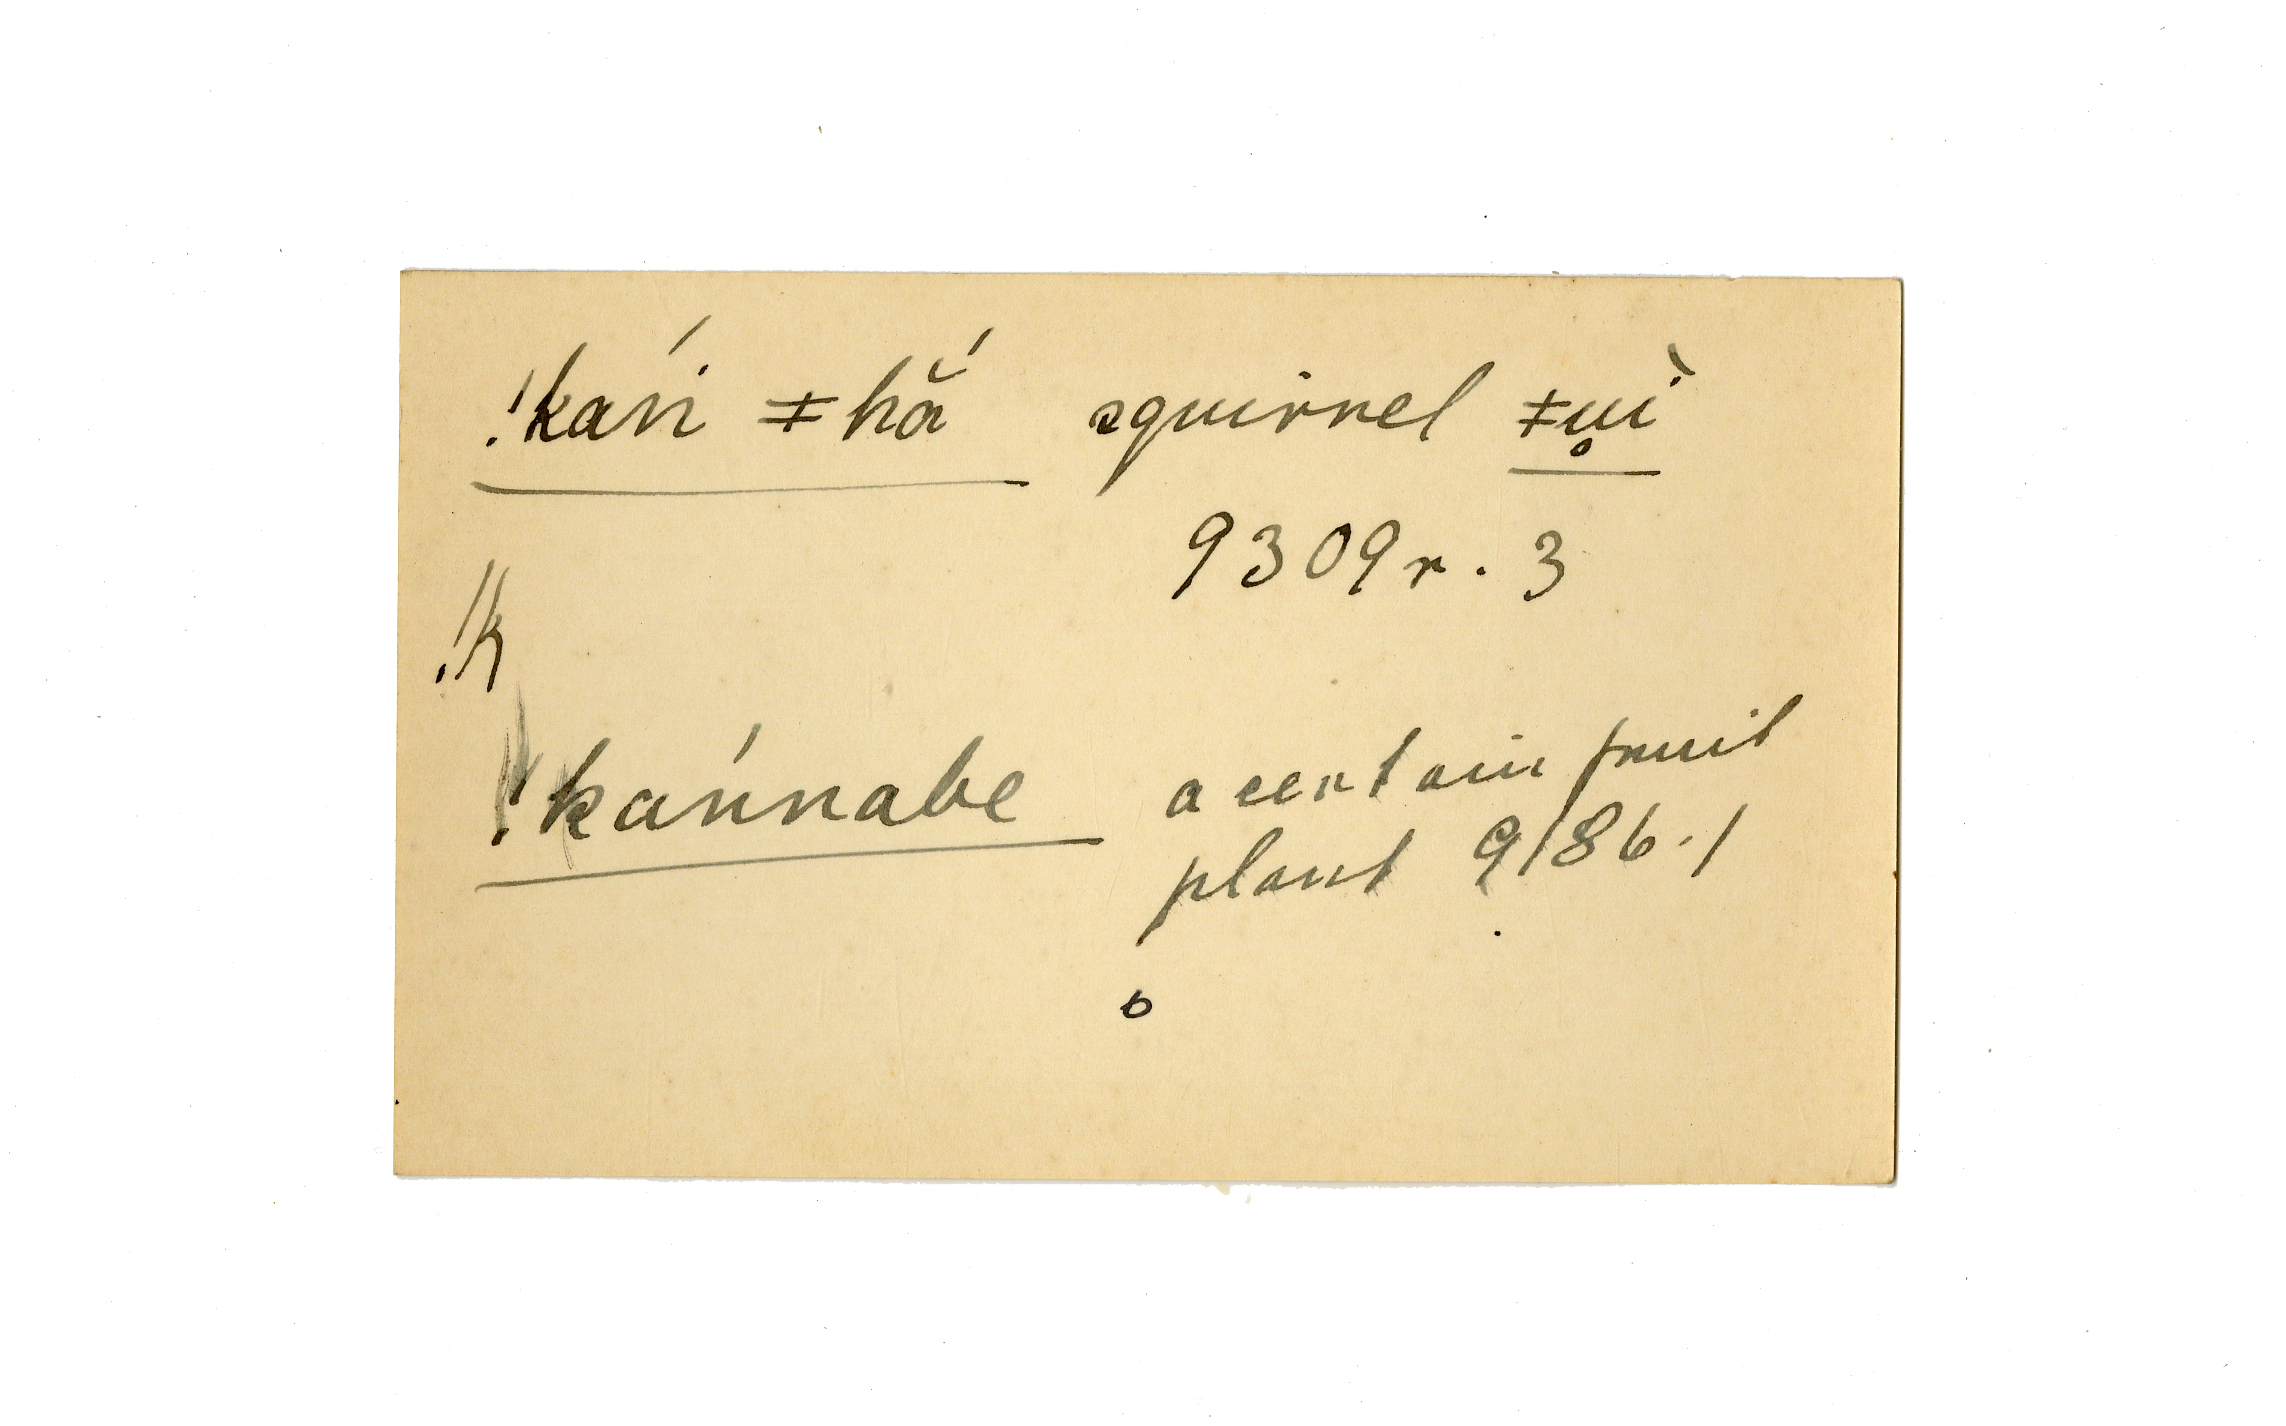 !kań ǂhǎ́ squirrel ǂu̥ì
9309r. 3
!k
!kánnabe a certain fruit
plant 9186.1